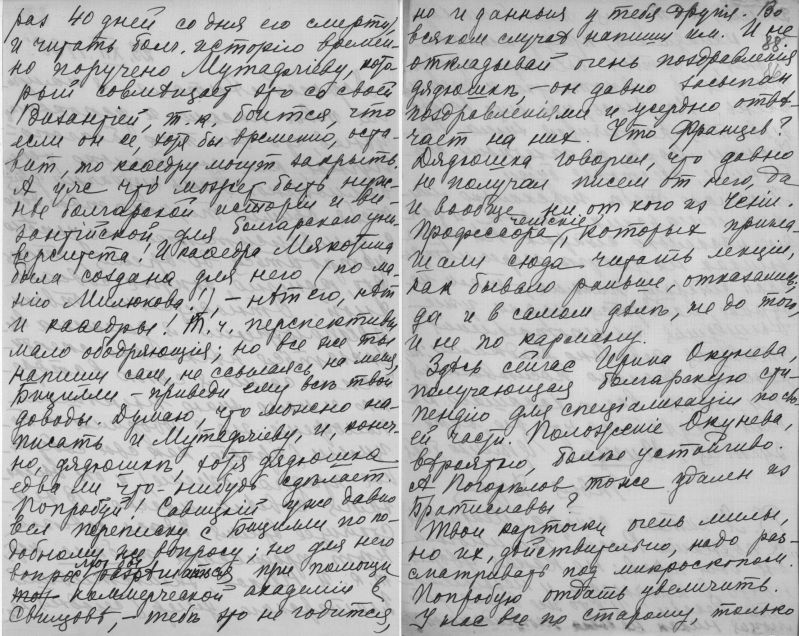 раз 40 дней со дня его смерти,
и читать болг. исторію времен-
но поручено Мутафчіеву, кото-
рый совмѣщает это со своей
Византіей, т. к. боится, что
если он ее, хотя бы временно, оста-
вит, то кафедру могут закрыть.
А уже что может быть нуж-
нѣе болгарской исторіи и ви-
зантійской для болгарского уни-
верситета! И кафедра Мякотина
была создана для него (по ма-
нію Милюкова!), – нѣт его, нѣт
и кафедры! Т. ч. перспективы
мало ободряющія; но все же ты
напиши сам, не ссылаясь на меня,
Бицилли – приведи ему всѣ твои
доводы. Думаю, что можно на-
писать и Мутафчіеву, и, конеч-
но, дядюшкѣ, хотя дядюшка
едва ли что-нибудь сдѣлает.
Попробуй! Савицкій уже давно
вел переписку с Бицилли по по-
добному же вопросу; но для него
вопрос мог бы при помощи
коммерческой академіи в
Свищовѣ, – тебѣ это не годится,
но и данныя у тебя другія. Во
всяком случаѣ напиши им. И не
88.
откладывай очень поздравленія
дядюшкѣ, – он давно засыпан
поздравленіями и усердно отвѣ-
чает на них. Что Францев?
Дядюшка говорил, что давно
не получал писем от него, да
и вообще ни от кого из Чехіи.
чешскіе
Профессора, которых пригла-
шали сюда читать лекціи,
как бывало раньше, отказались,
да и в самом дѣлѣ, не до того,
и не по карману.
Здѣсь сейчас Ирина Окунева,
получающая болгарскую сти-
пендію для спеціализаціи по сво-
ей части. Положеніе Окунева,
вѣроятно, болѣе устойчиво.
А Погорѣлов тоже удален из
Братиславы?
Твои карточки очень милы,
но их, дѣйствительно, надо раз-
сматривать под микроскопом.
Попробую отдать увеличить.
У нас все по старому, только